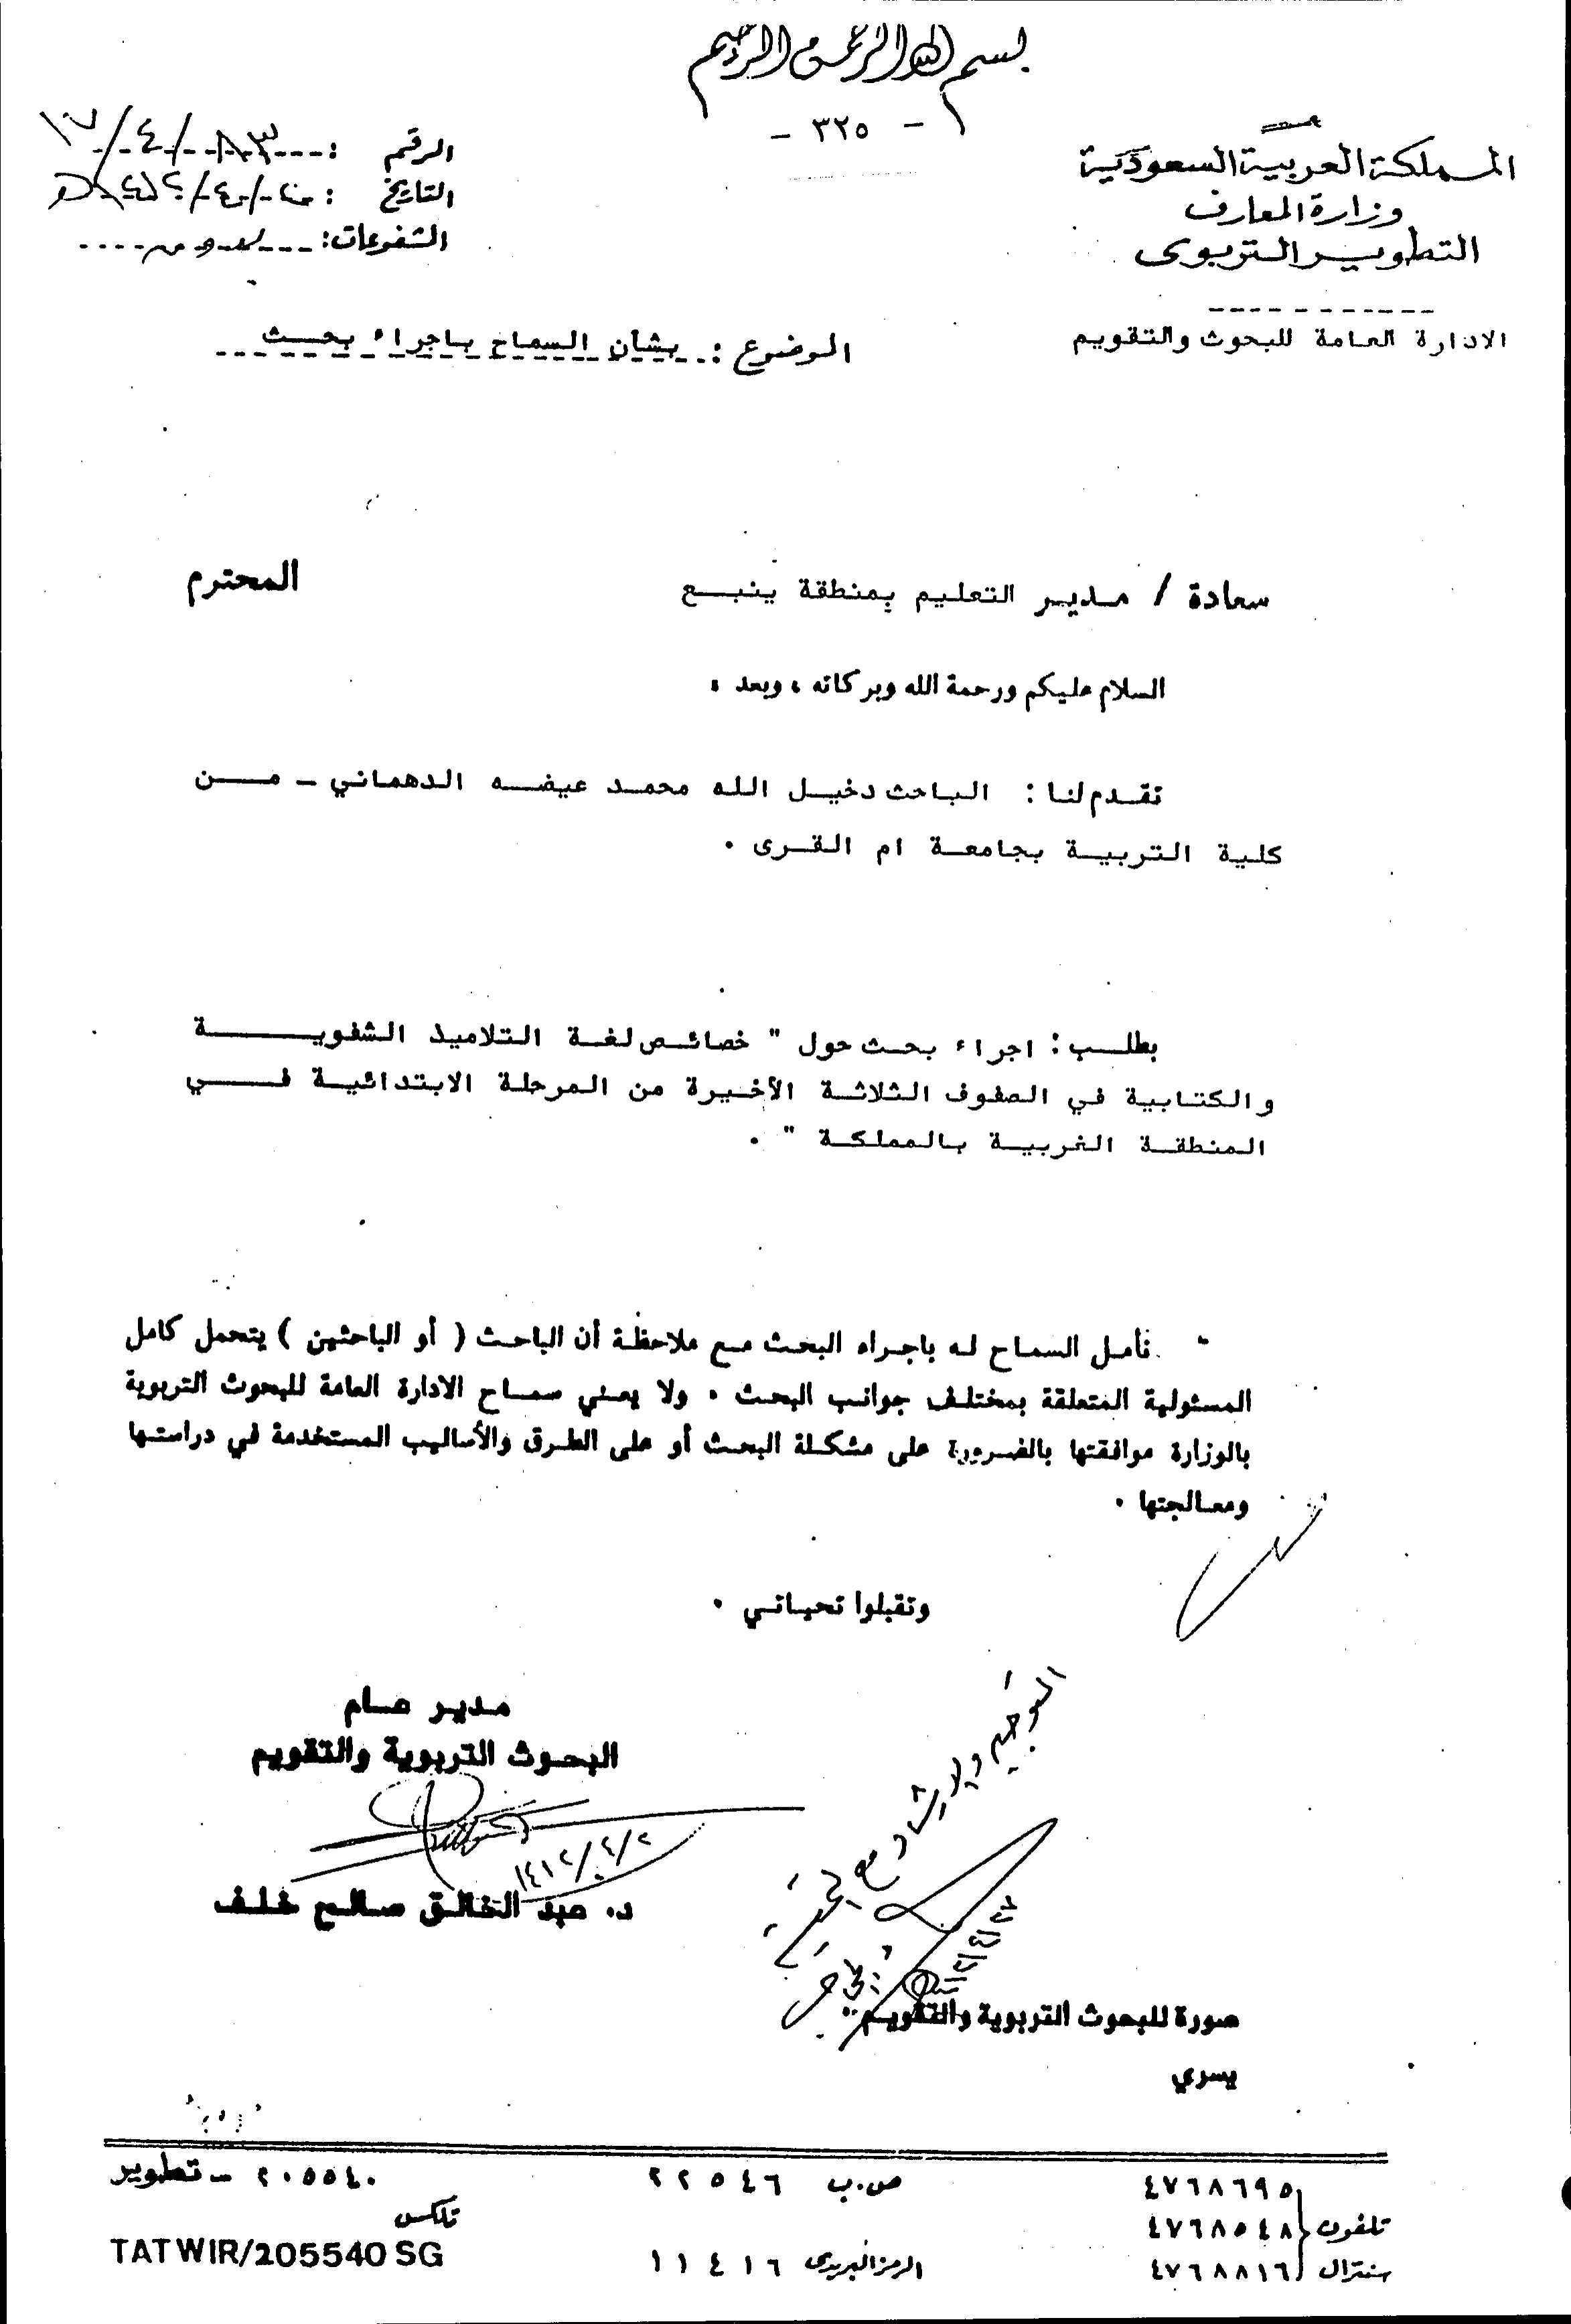 بسم الله الرحمن الرحيم
- ٣٢٥ -
المملكة العربية السعودية
وزارة المعارف
التطوير التربوى
الادارة العامة للبحوث والتقويم
الرقم :
التاريخ :
المشفوعات : بدون
الموضوع : بشأن السماح باجراء بحث
سعادة / مدير التعليم بمنطقة ينبع المحترم
السلام عليكم ورحمة الله وبركاته ، وبعد ،
تقدم لنا : الباحث دخيل الله محمد عيضه الدهماني - من
كلية التربية بجامعة ام القرى .
بطلب : اجراء بحث حول " خصائص لغة التلاميذ الشفوية
والكتابية في الصفوف الثلاثة الأخيرة من المرحلة الابتدائية في
المنطقة الغربية بالمملكة " .
نأمل السماح له باجراء البحث مع ملاحظة أن الباحث ( أو الباحثين ) يتحمل كامل
المسئولية المتعلقة بمختلف جوانب البحث . ولا يعني سماح الادارة العامة للبحوث التربوية
بالوزارة موافقتها بالضرورة على مشكلة البحث أو على الطرق والأساليب المستخدمة في دراستها
ومعالجتها .
وتقبلوا تحياتي .
مدير عام
البحوث التربوية والتقويم
١٤١٢/٤/٢
د. عبد الخالق صالح خلف
التوجيه والارشاد مع
صورة للبحوث التربوية والتقويم
يسري
تلفون ٤٧٦٨٦٩٥
٤٧٦٨٥٤٨
سنترال ٤٧٦٨٨١٦
ص.ب ٢٢٥٤٦
الرمز البريدى ١١٤١٦
٢٠٥٥٤٠ - تطوير
تلكس
TATWIR/205540 SG